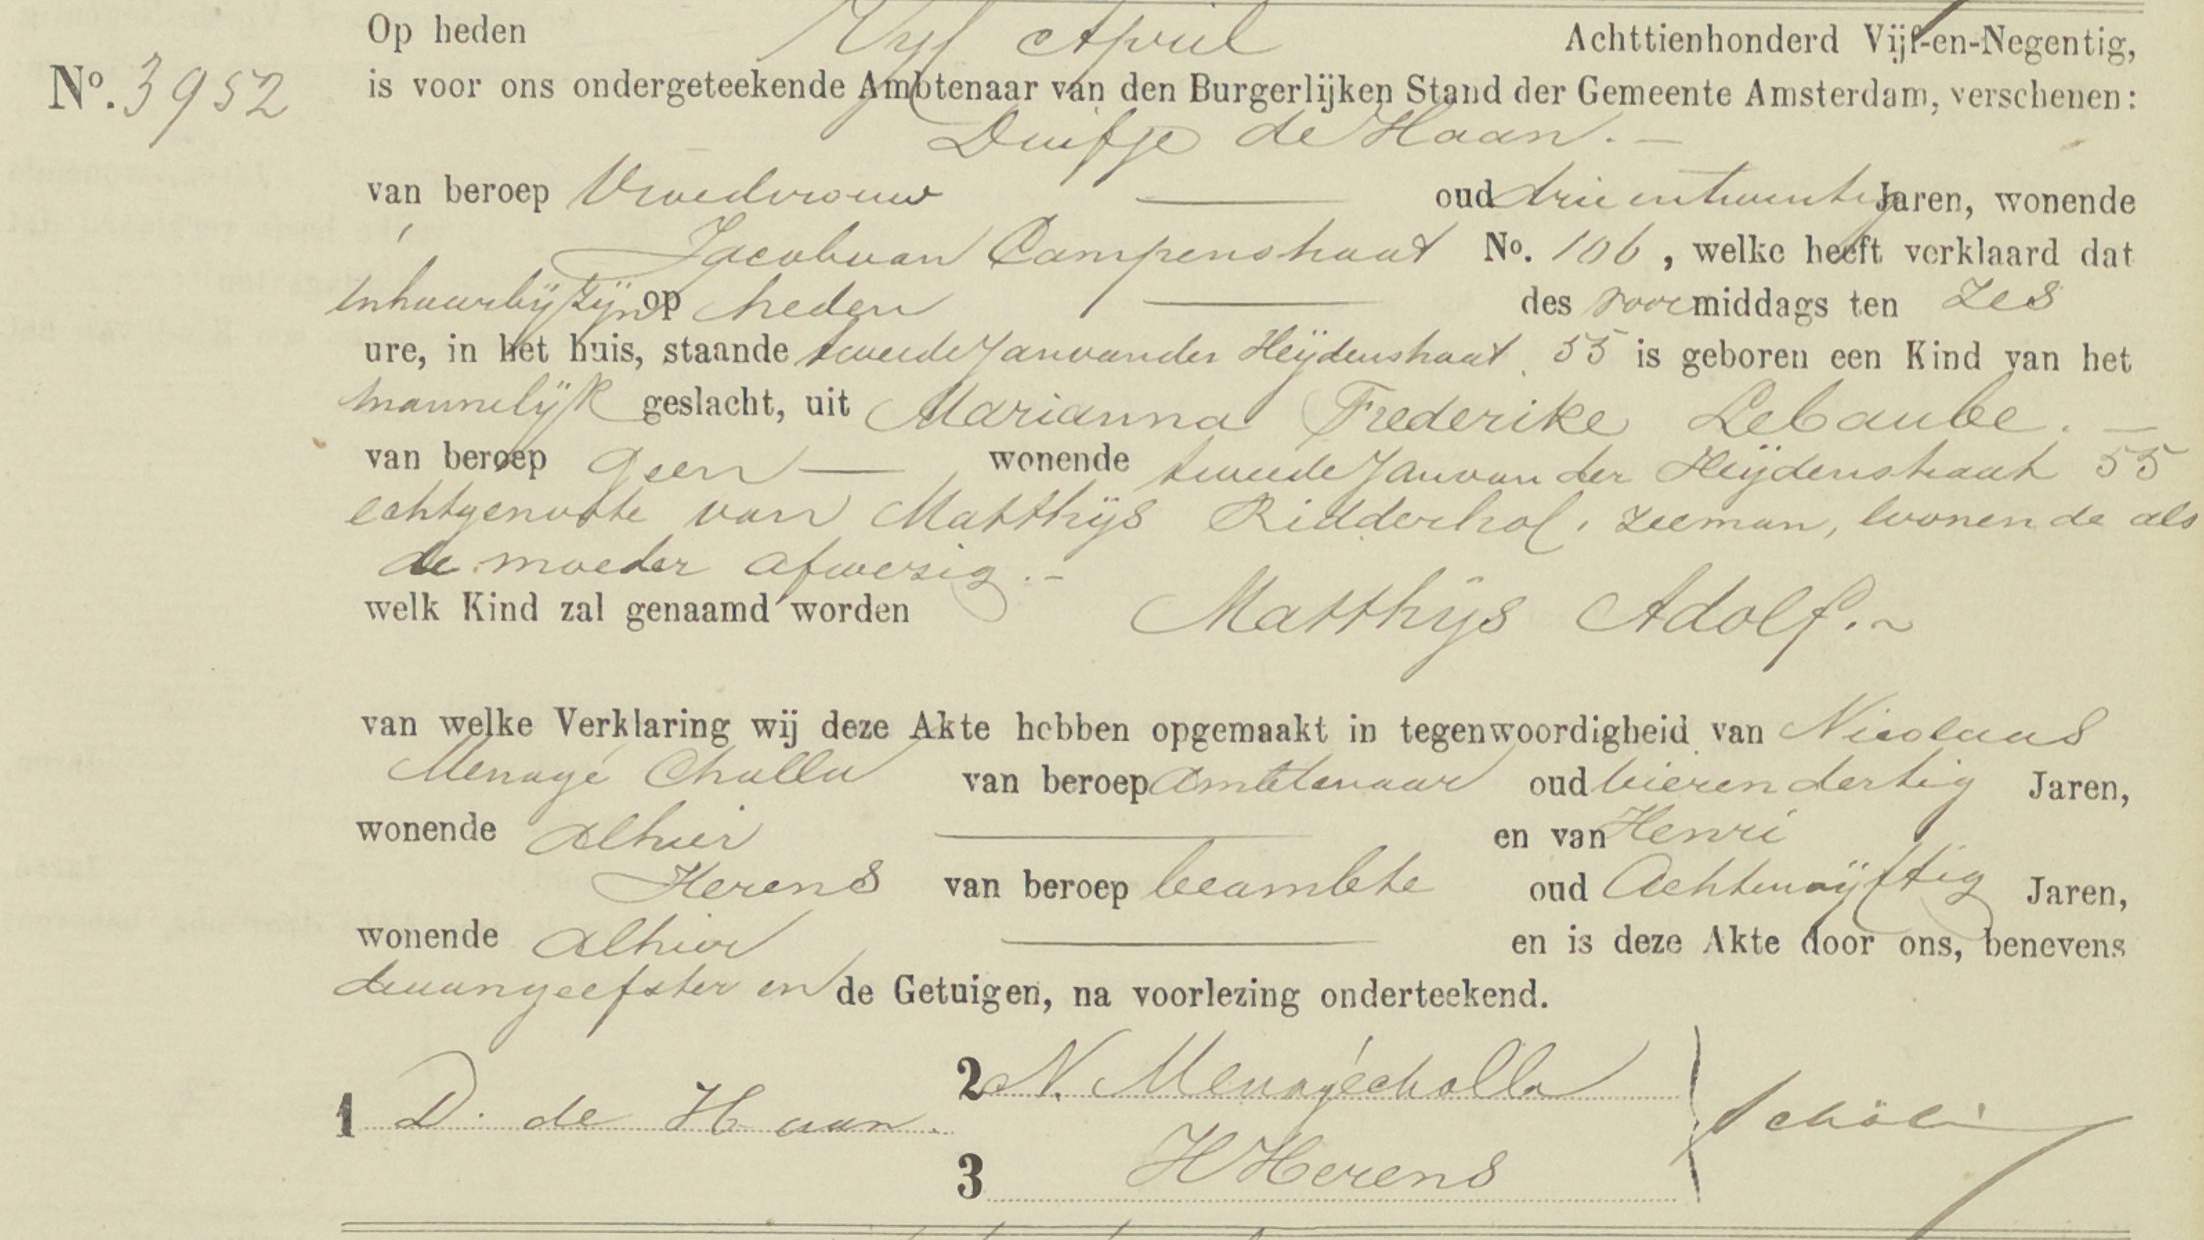 Op heden Vijf April Achttienhonderd Vijf-en-Negentig,
No. 3952
is voor ons ondergeteekende Ambtenaar van den Burgerlijken Stand der Gemeente Amsterdam, verschenen:
Duifje de Haan.—
van beroep Vroedvrouw — oud drieentwintig Jaren, wonende
Jacob van Campenstraat No. 106, welke heeft verklaard dat
in haar bijzijn op heden — des voormiddags ten zes
ure, in het huis, staande tweede Jan van der Heijdenstraat 55 is geboren een Kind van het
mannelijk geslacht, uit Marianna Frederike Lebaube.—
van beroep geen — wonende tweede Jan van der Heijdenstraat 55
echtgenoote van Matthijs Ridderhof, zeeman, wonende als
de moeder afwezig.—
welk Kind zal genaamd worden Matthijs Adolf.~
van welke Verklaring wij deze Akte hebben opgemaakt in tegenwoordigheid van Nicolaas
Menagé Challa van beroep ambtenaar oud vierendertig Jaren,
wonende alhier — en van Henri
Herens van beroep beambte oud Achtenvijftig Jaren,
wonende alhier — en is deze Akte door ons, benevens
de aangeefster en de Getuigen, na voorlezing onderteekend.
1 D. de Haan.
2 N. Menagéchalla
3 HHerens